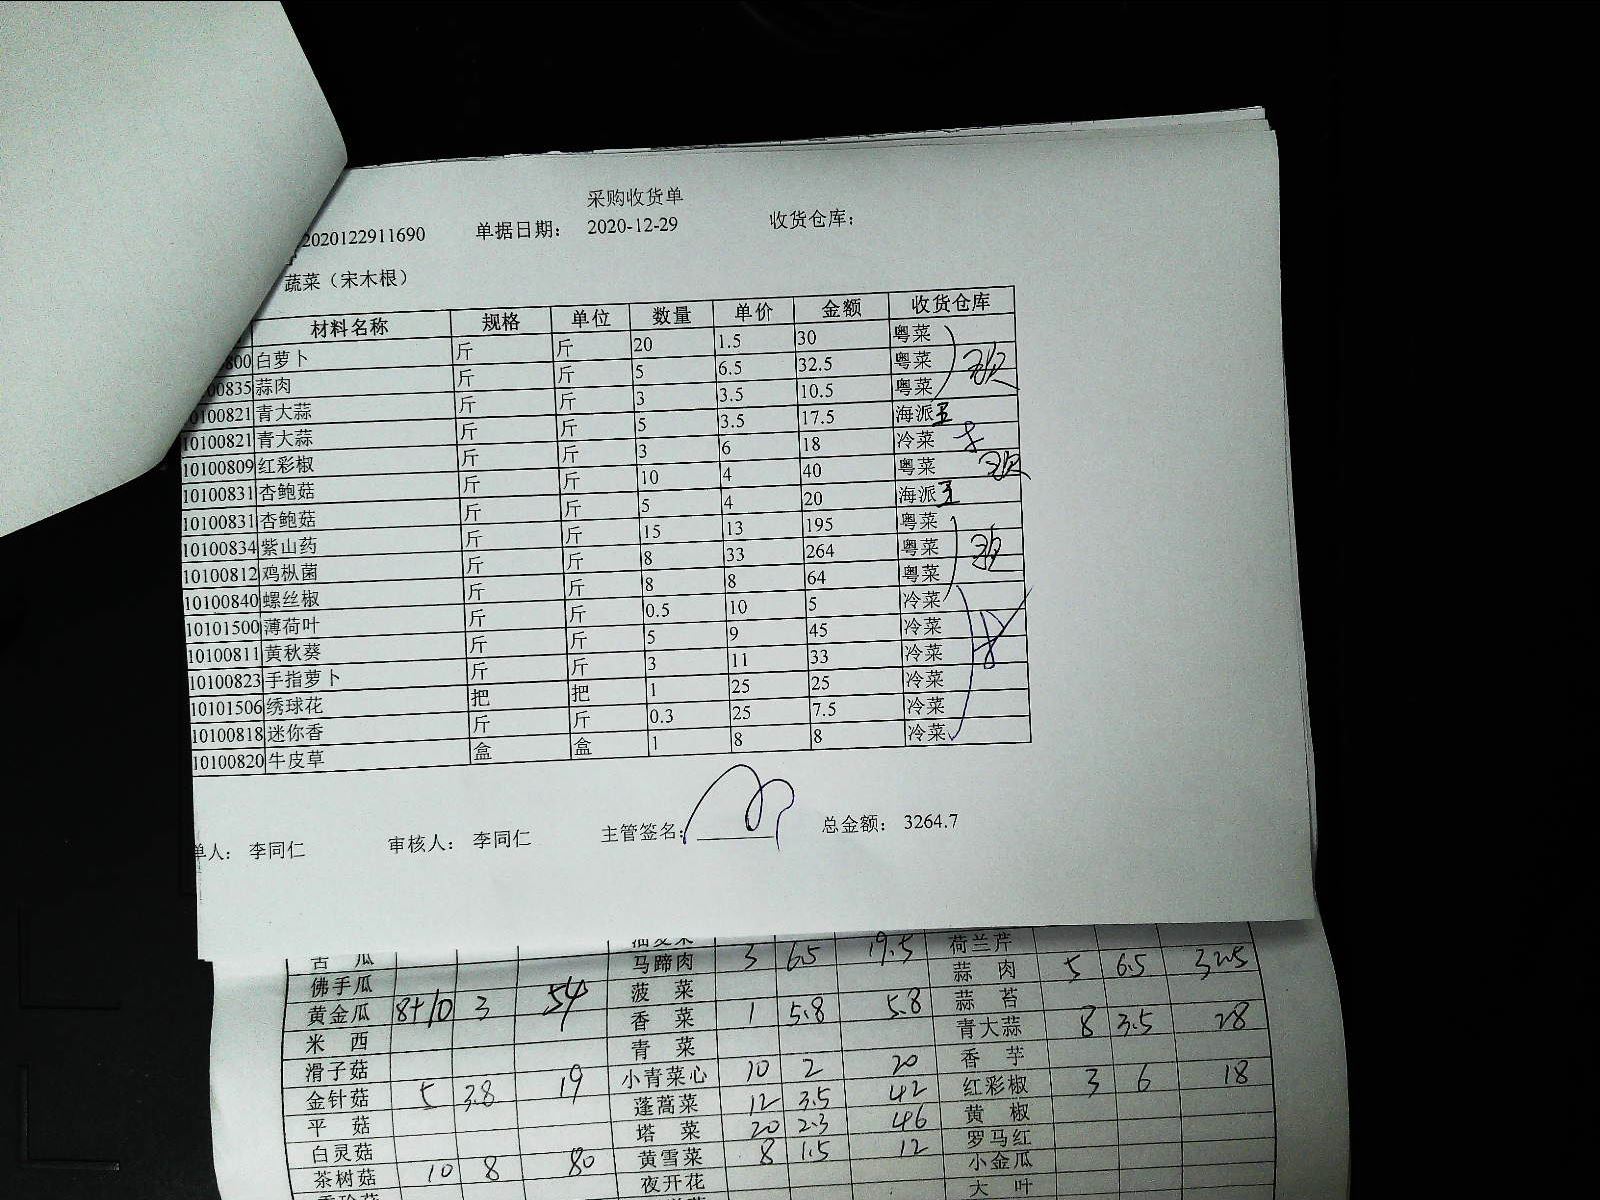 采购收货单
2020122911690 单据日期： 2020-12-29 收货仓库：
蔬菜（宋木根）
材料名称 规格 单位 数量 单价 金额 收货仓库
800 白萝卜 斤 斤 20 1.5 30 粤菜
00835 蒜肉 斤 斤 5 6.5 32.5 粤菜
0100821 青大蒜 斤 斤 3 3.5 10.5 粤菜
10100821 青大蒜 斤 斤 5 3.5 17.5 海派 王
10100809 红彩椒 斤 斤 3 6 18 冷菜
10100831 杏鲍菇 斤 斤 10 4 40 粤菜
10100831 杏鲍菇 斤 斤 5 4 20 海派 王
10100834 紫山药 斤 斤 15 13 195 粤菜
10100812 鸡枞菌 斤 斤 8 33 264 粤菜
10100840 螺丝椒 斤 斤 8 8 64 粤菜
10101500 薄荷叶 斤 斤 0.5 10 5 冷菜
10100811 黄秋葵 斤 斤 5 9 45 冷菜
10100823 手指萝卜 斤 斤 3 11 33 冷菜
10101506 绣球花 把 把 1 25 25 冷菜
10100818 迷你香 斤 斤 0.3 25 7.5 冷菜
10100820 牛皮草 盒 盒 1 8 8 冷菜
单人： 李同仁 审核人： 李同仁 主管签名： 总金额： 3264.7
苦 瓜 荷兰芹
佛手瓜 马蹄肉 3 6.5 19.5 蒜 肉 5 6.5 32.5
黄金瓜 8+10 3 54 菠 菜 蒜 苔
米 西 香 菜 1 5.8 5.8 青大蒜 8 3.5 28
滑子菇 青 菜 香 芋
金针菇 5 3.8 19 小青菜心 10 2 20 红彩椒 3 6 18
平 菇 蓬蒿菜 12 3.5 42 黄 椒
白灵菇 塔 菜 20 2.3 46 罗马红
茶树菇 10 8 80 黄雪菜 8 1.5 12 小金瓜
夜开花 大 叶